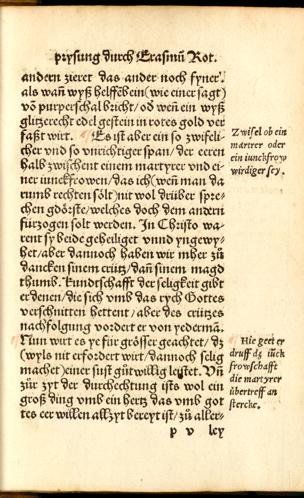 prysung durch Erasmū Rot.
andern zieret das ander noch fyner /
als wañ wyß helffēbein (wie einer sagt)
vō purperschal bricht / od weñ ein wyß
glitzerecht edel gestein in rotes gold ver
faßt wirt. ¶ Es ist aber ein so zwifeli-
cher vnd so vnrichtiger span / der eeren
halb zwischent einem martyrer vnd ei-
ner iunckfrowen / das ich (weñ man da
rumb rechten sölt) nit wol drüber spre-
chen gdörste / welches doch dem andern
fürzogen solt werden. In Christo wa-
rent sy beide geheiliget vnnd yngewy-
het / aber dannoch haben wir mher zů
dancken sinem crütz / dañ sinem magd
thumb. Kundtschafft der seligkeit gibt
er denen / die sich vmb das rych Gottes
verschnitten hettent / aber des crützes
nachfolgung vordert er von yedermā.
Nun wirt es ye für grösser geachtet / dz
(wyls nit erfordert wirt / dannoch selig
machet) einer sust gůtwillig leistet. Vñ
zůr zyt der durchechtung ists wol ein
groß ding vmb ein hertz das vmb got
tes eer willen allzyt bereyt ist / zů aller-
p v ley
Zwifel ob ein
martrer oder
ein iunckfrow
wirdiger sey.
Hie geet er
druff dz iūck
frowschafft
die martyrer
übertreff an
stercke.